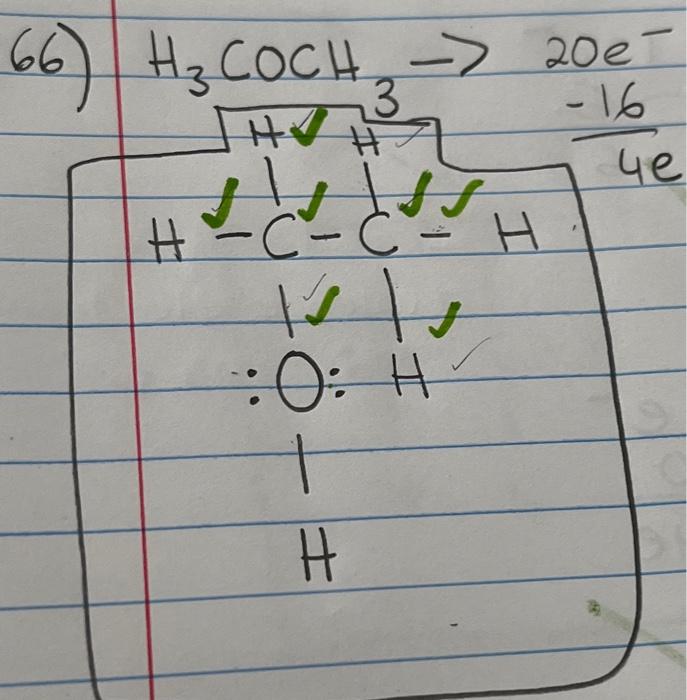 66) H₃COCH₃ → 20e⁻
-16
4e
H H
H - C - C - H
:O: H
H